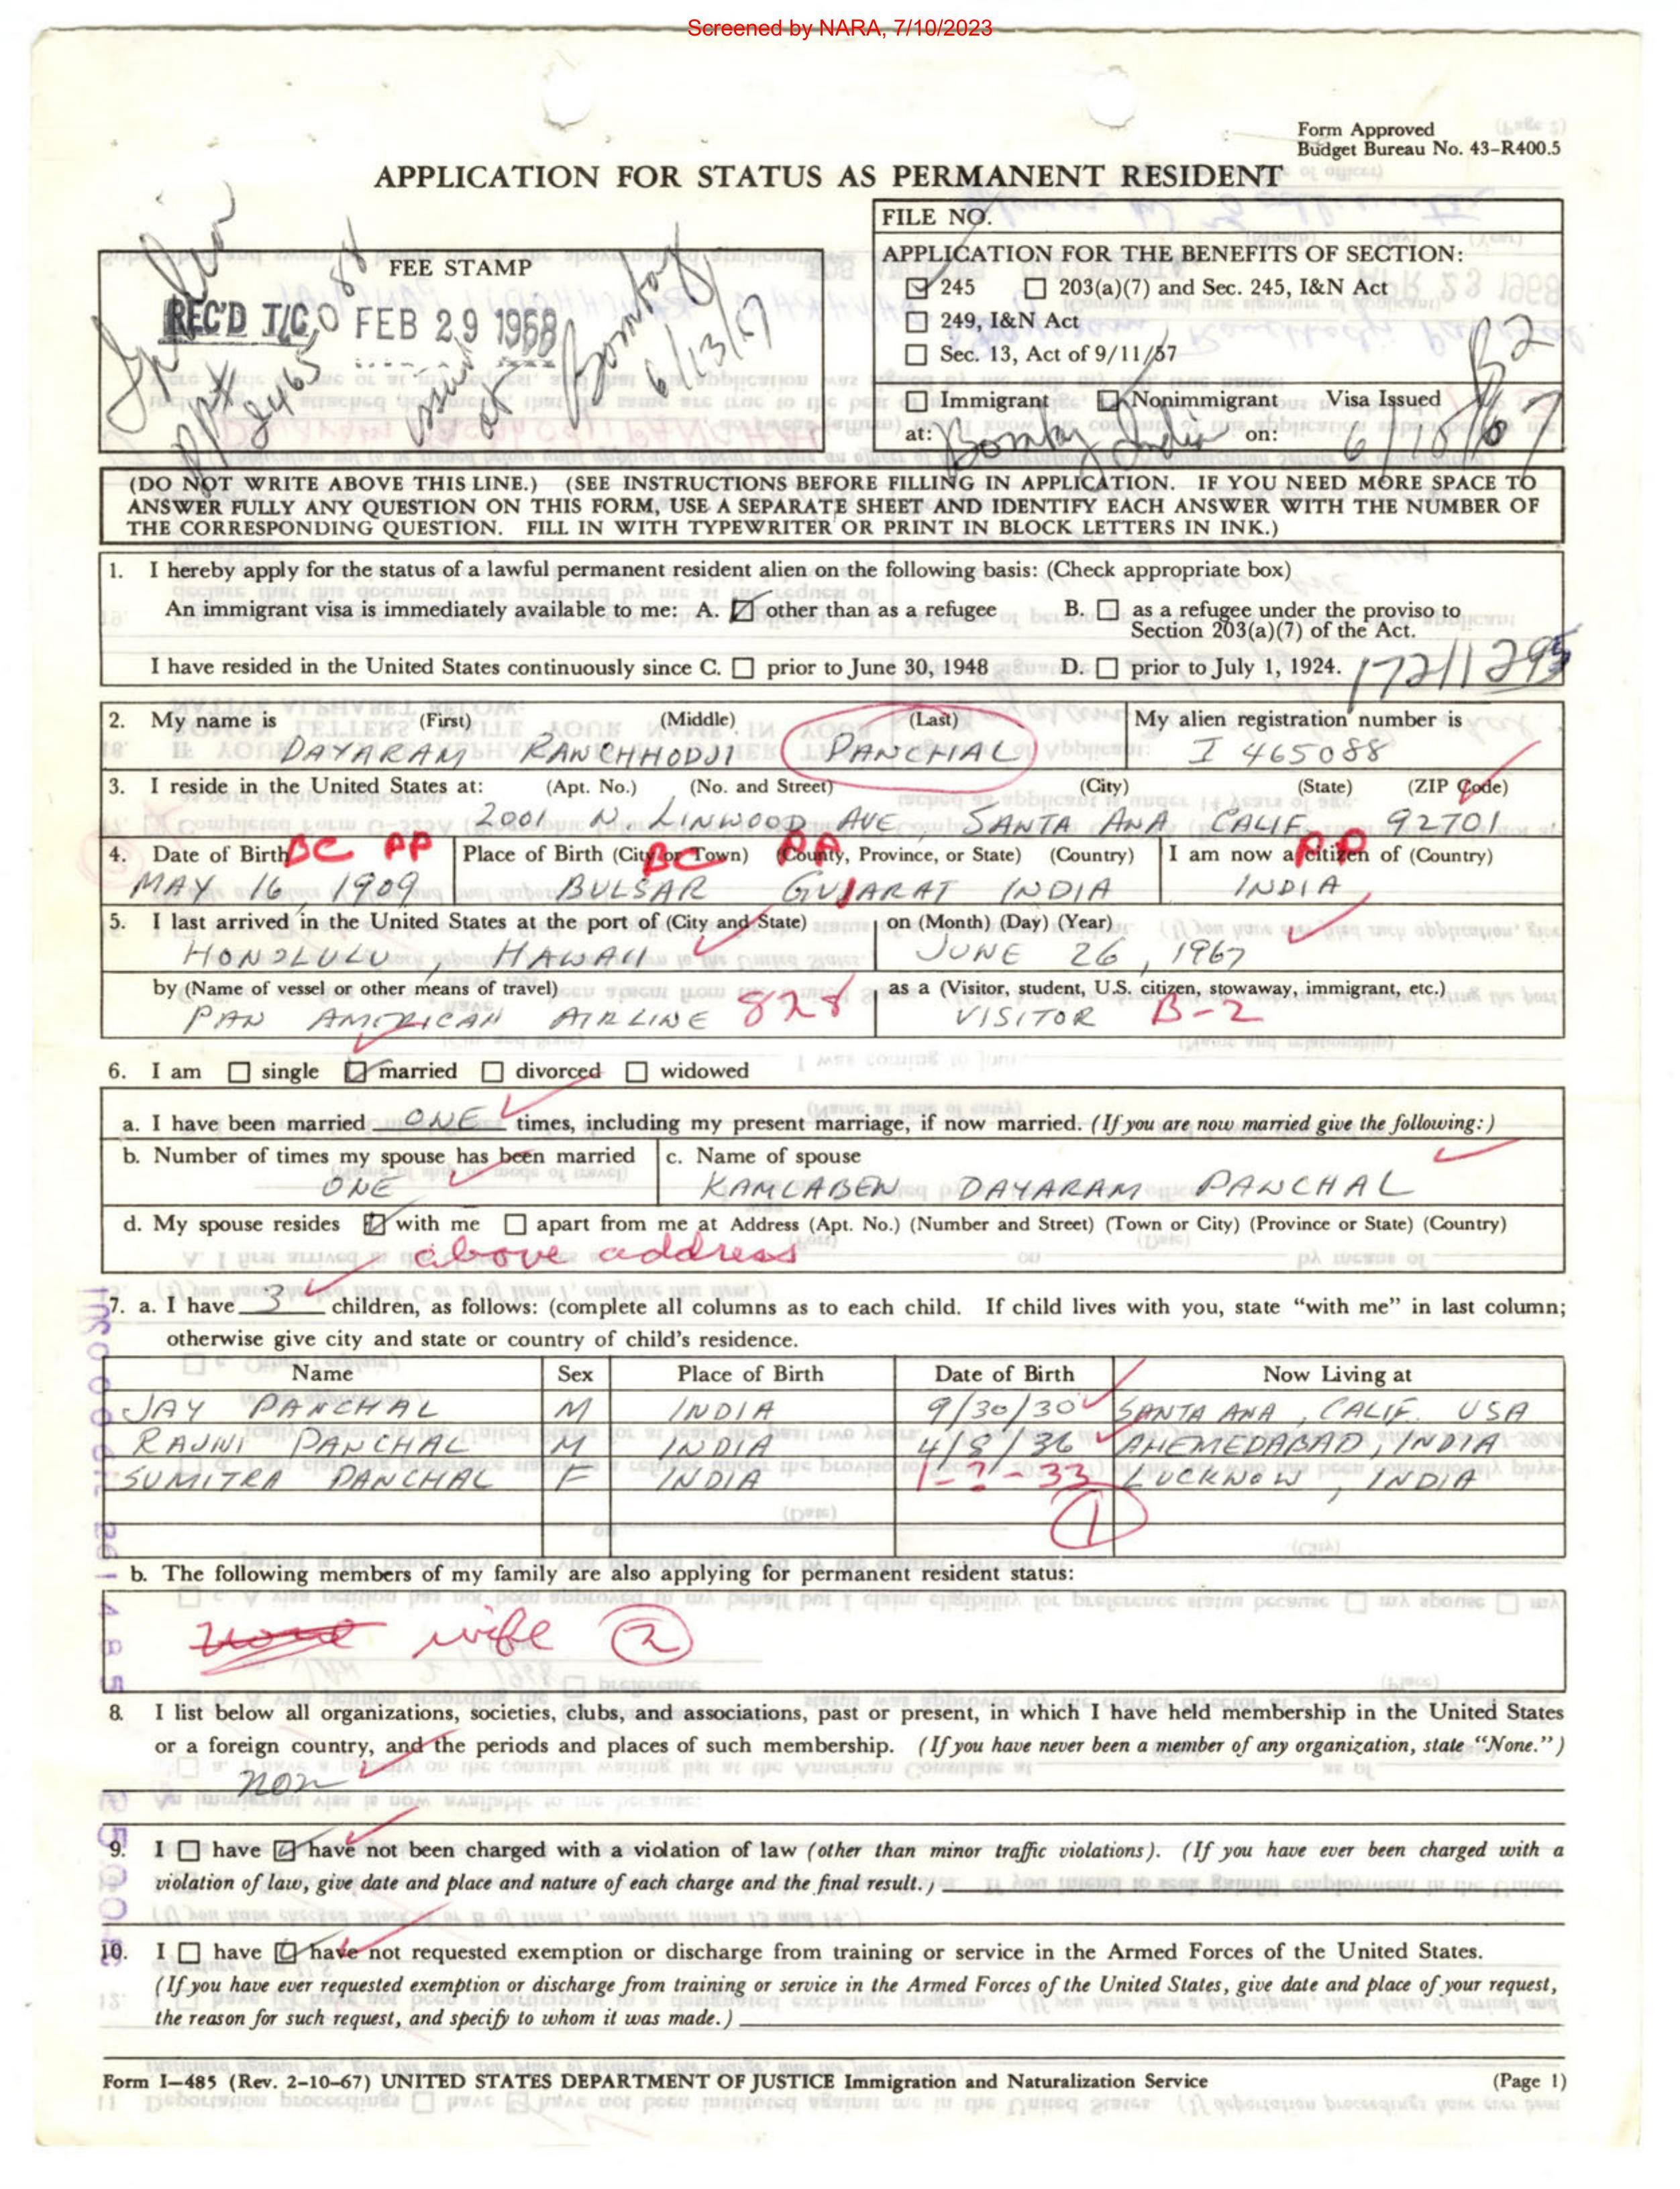 Screened by NARA, 7/10/2023
Form Approved
Budget Bureau No. 43-R400.5
APPLICATION FOR STATUS AS PERMANENT RESIDENT
FEE STAMP
REC'D T/C FEB 29 1968
Bombay
6/13/67
FILE NO.
APPLICATION FOR THE BENEFITS OF SECTION:
☑ 245 ☐ 203(a)(7) and Sec. 245, I&N Act
☐ 249, I&N Act
☐ Sec. 13, Act of 9/11/57
B2
☐ Immigrant ☑ Nonimmigrant Visa Issued
at: Bombay India on: 6/10/67
(DO NOT WRITE ABOVE THIS LINE.) (SEE INSTRUCTIONS BEFORE FILLING IN APPLICATION. IF YOU NEED MORE SPACE TO
ANSWER FULLY ANY QUESTION ON THIS FORM, USE A SEPARATE SHEET AND IDENTIFY EACH ANSWER WITH THE NUMBER OF
THE CORRESPONDING QUESTION. FILL IN WITH TYPEWRITER OR PRINT IN BLOCK LETTERS IN INK.)
1. I hereby apply for the status of a lawful permanent resident alien on the following basis: (Check appropriate box)
An immigrant visa is immediately available to me: A. ☑ other than as a refugee B. ☐ as a refugee under the proviso to
Section 203(a)(7) of the Act.
I have resided in the United States continuously since C. ☐ prior to June 30, 1948 D. ☐ prior to July 1, 1924.
2. My name is (First) (Middle) (Last) My alien registration number is
DAYARAM RANCHHODJI PANCHAL I 465088
3. I reside in the United States at: (Apt. No.) (No. and Street) (City) (State) (ZIP Code)
2001 N. LINWOOD AVE SANTA ANA CALIF 92701
4. Date of Birth BC PP Place of Birth (City or Town) BC (County, Province, or State) PP (Country) I am now a citizen of (Country) PP
MAY 16, 1909 BULSAR GUJARAT INDIA INDIA
5. I last arrived in the United States at the port of (City and State) on (Month) (Day) (Year)
HONOLULU, HAWAII JUNE 26, 1967
by (Name of vessel or other means of travel) as a (Visitor, student, U.S. citizen, stowaway, immigrant, etc.)
PAN AMERICAN AIRLINE 828 VISITOR B-2
6. I am ☐ single ☑ married ☐ divorced ☐ widowed
a. I have been married ONE times, including my present marriage, if now married. (If you are now married give the following:)
b. Number of times my spouse has been married c. Name of spouse
ONE KAMLABEN DAYARAM PANCHAL
d. My spouse resides ☑ with me ☐ apart from me at Address (Apt. No.) (Number and Street) (Town or City) (Province or State) (Country)
above address
7. a. I have 3 children, as follows: (complete all columns as to each child. If child lives with you, state "with me" in last column;
otherwise give city and state or country of child's residence.
Name Sex Place of Birth Date of Birth Now Living at
JAY PANCHAL M INDIA 9/30/30 SANTA ANA, CALIF. USA
RAJNI PANCHAL M INDIA 4/8/36 AHEMEDABAD, INDIA
SUMITRA PANCHAL F INDIA 1-?-33 LUCKNOW, INDIA
1
b. The following members of my family are also applying for permanent resident status:
wife 2
8. I list below all organizations, societies, clubs, and associations, past or present, in which I have held membership in the United States
or a foreign country, and the periods and places of such membership. (If you have never been a member of any organization, state "None.")
non
9. I ☐ have ☑ have not been charged with a violation of law (other than minor traffic violations). (If you have ever been charged with a
violation of law, give date and place and nature of each charge and the final result.)
10. I ☐ have ☑ have not requested exemption or discharge from training or service in the Armed Forces of the United States.
(If you have ever requested exemption or discharge from training or service in the Armed Forces of the United States, give date and place of your request,
the reason for such request, and specify to whom it was made.)
Form I-485 (Rev. 2-10-67) UNITED STATES DEPARTMENT OF JUSTICE Immigration and Naturalization Service (Page 1)